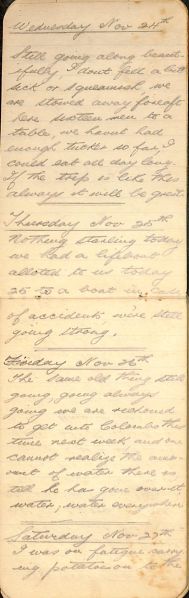 Wednesday Nov 24th
Still going along beaut-
ifully I dont feel a bit
sick or squeamish, we
are stowed away foreaft
here sixteen men to a
table, we havent had
enough tucker so far I
could eat all day long.
If the trip is like this
always it will be great
Thursday Nov 25th
Nothing startling today
we had a lifeboat
alloted to us today
25 to a boat in case
of accidents were still
going strong.
Friday Nov 26th
The same old thing still
going, going always
going we are reckoned
to get into Colombo this
time next week and one
cannot realize the amo-
unt of water there is
till he has gone over it.
water, water everywhere
Saturday Nov 27th
I was on fatigue carry-
ing potatoes on to the